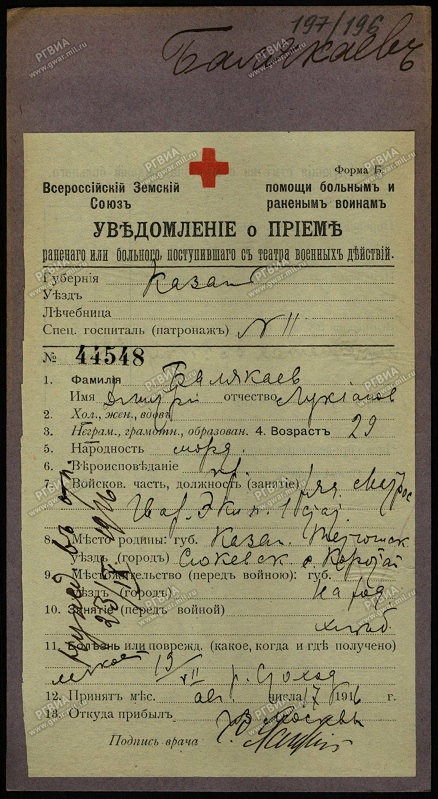 197/196
Балякаевъ
Форма Б.
Всероссійскій Земскій Союзъ
помощи больнымъ и раненымъ воинамъ
УВѢДОМЛЕНІЕ о ПРІЕМѢ
раненаго или больного, поступившаго съ театра военныхъ дѣйствій.
Губернія Казан
Уѣздъ
Лѣчебница
Спец. госпиталь (патронажъ) № 11
№ 44548
1. Фамилія Балякаев
Имя Дмитрій отчество
2. Хол., жен., вдовъ
3. Неграм., грамотн., образован. 4. Возрастъ 29
5. Народность морд.
6. Вѣроисповѣданіе пр.
7. Войсков. часть, должность (занятіе) ряд. Матрос
Гвар. Экип. 1
8. Мѣсто родины: губ. Казан.
уѣздъ (городъ)
9. Мѣстожительство (передъ войною): губ.
уѣздъ (городъ) на род.
10. Занятіе (передъ войной)
хлѣб.
11. Болѣзнь или поврежд. (какое, когда и гдѣ получено)
13/VII р. Стоход
12. Принятъ мѣс. авг. числа 17 1916 г.
13. Откуда прибылъ из Москвы
Подпись врача
РГВИА
www.gwar.mil.ru